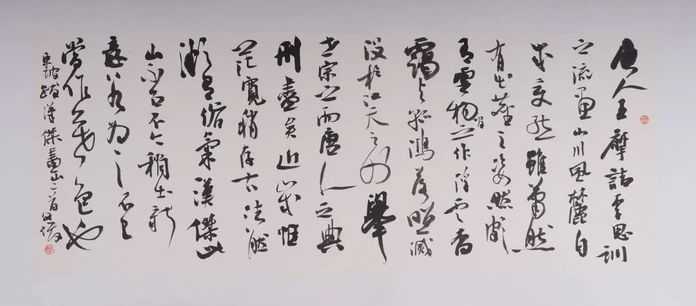 唐人王摩詰李思訓
之流畫山川風麓自
成變態雖蕭然
有出塵之姿然頗
以雲物間之作浮雲杳
靄與孤鴻落照滅
沒於江天之外舉
世宗之而唐人之典
刑盡矣近歲惟
范寬稍存古法然
微有俗氣漢傑此
山不古不今稍出新
意若為之不已
當作著色也
東坡跋漢傑畫山二首